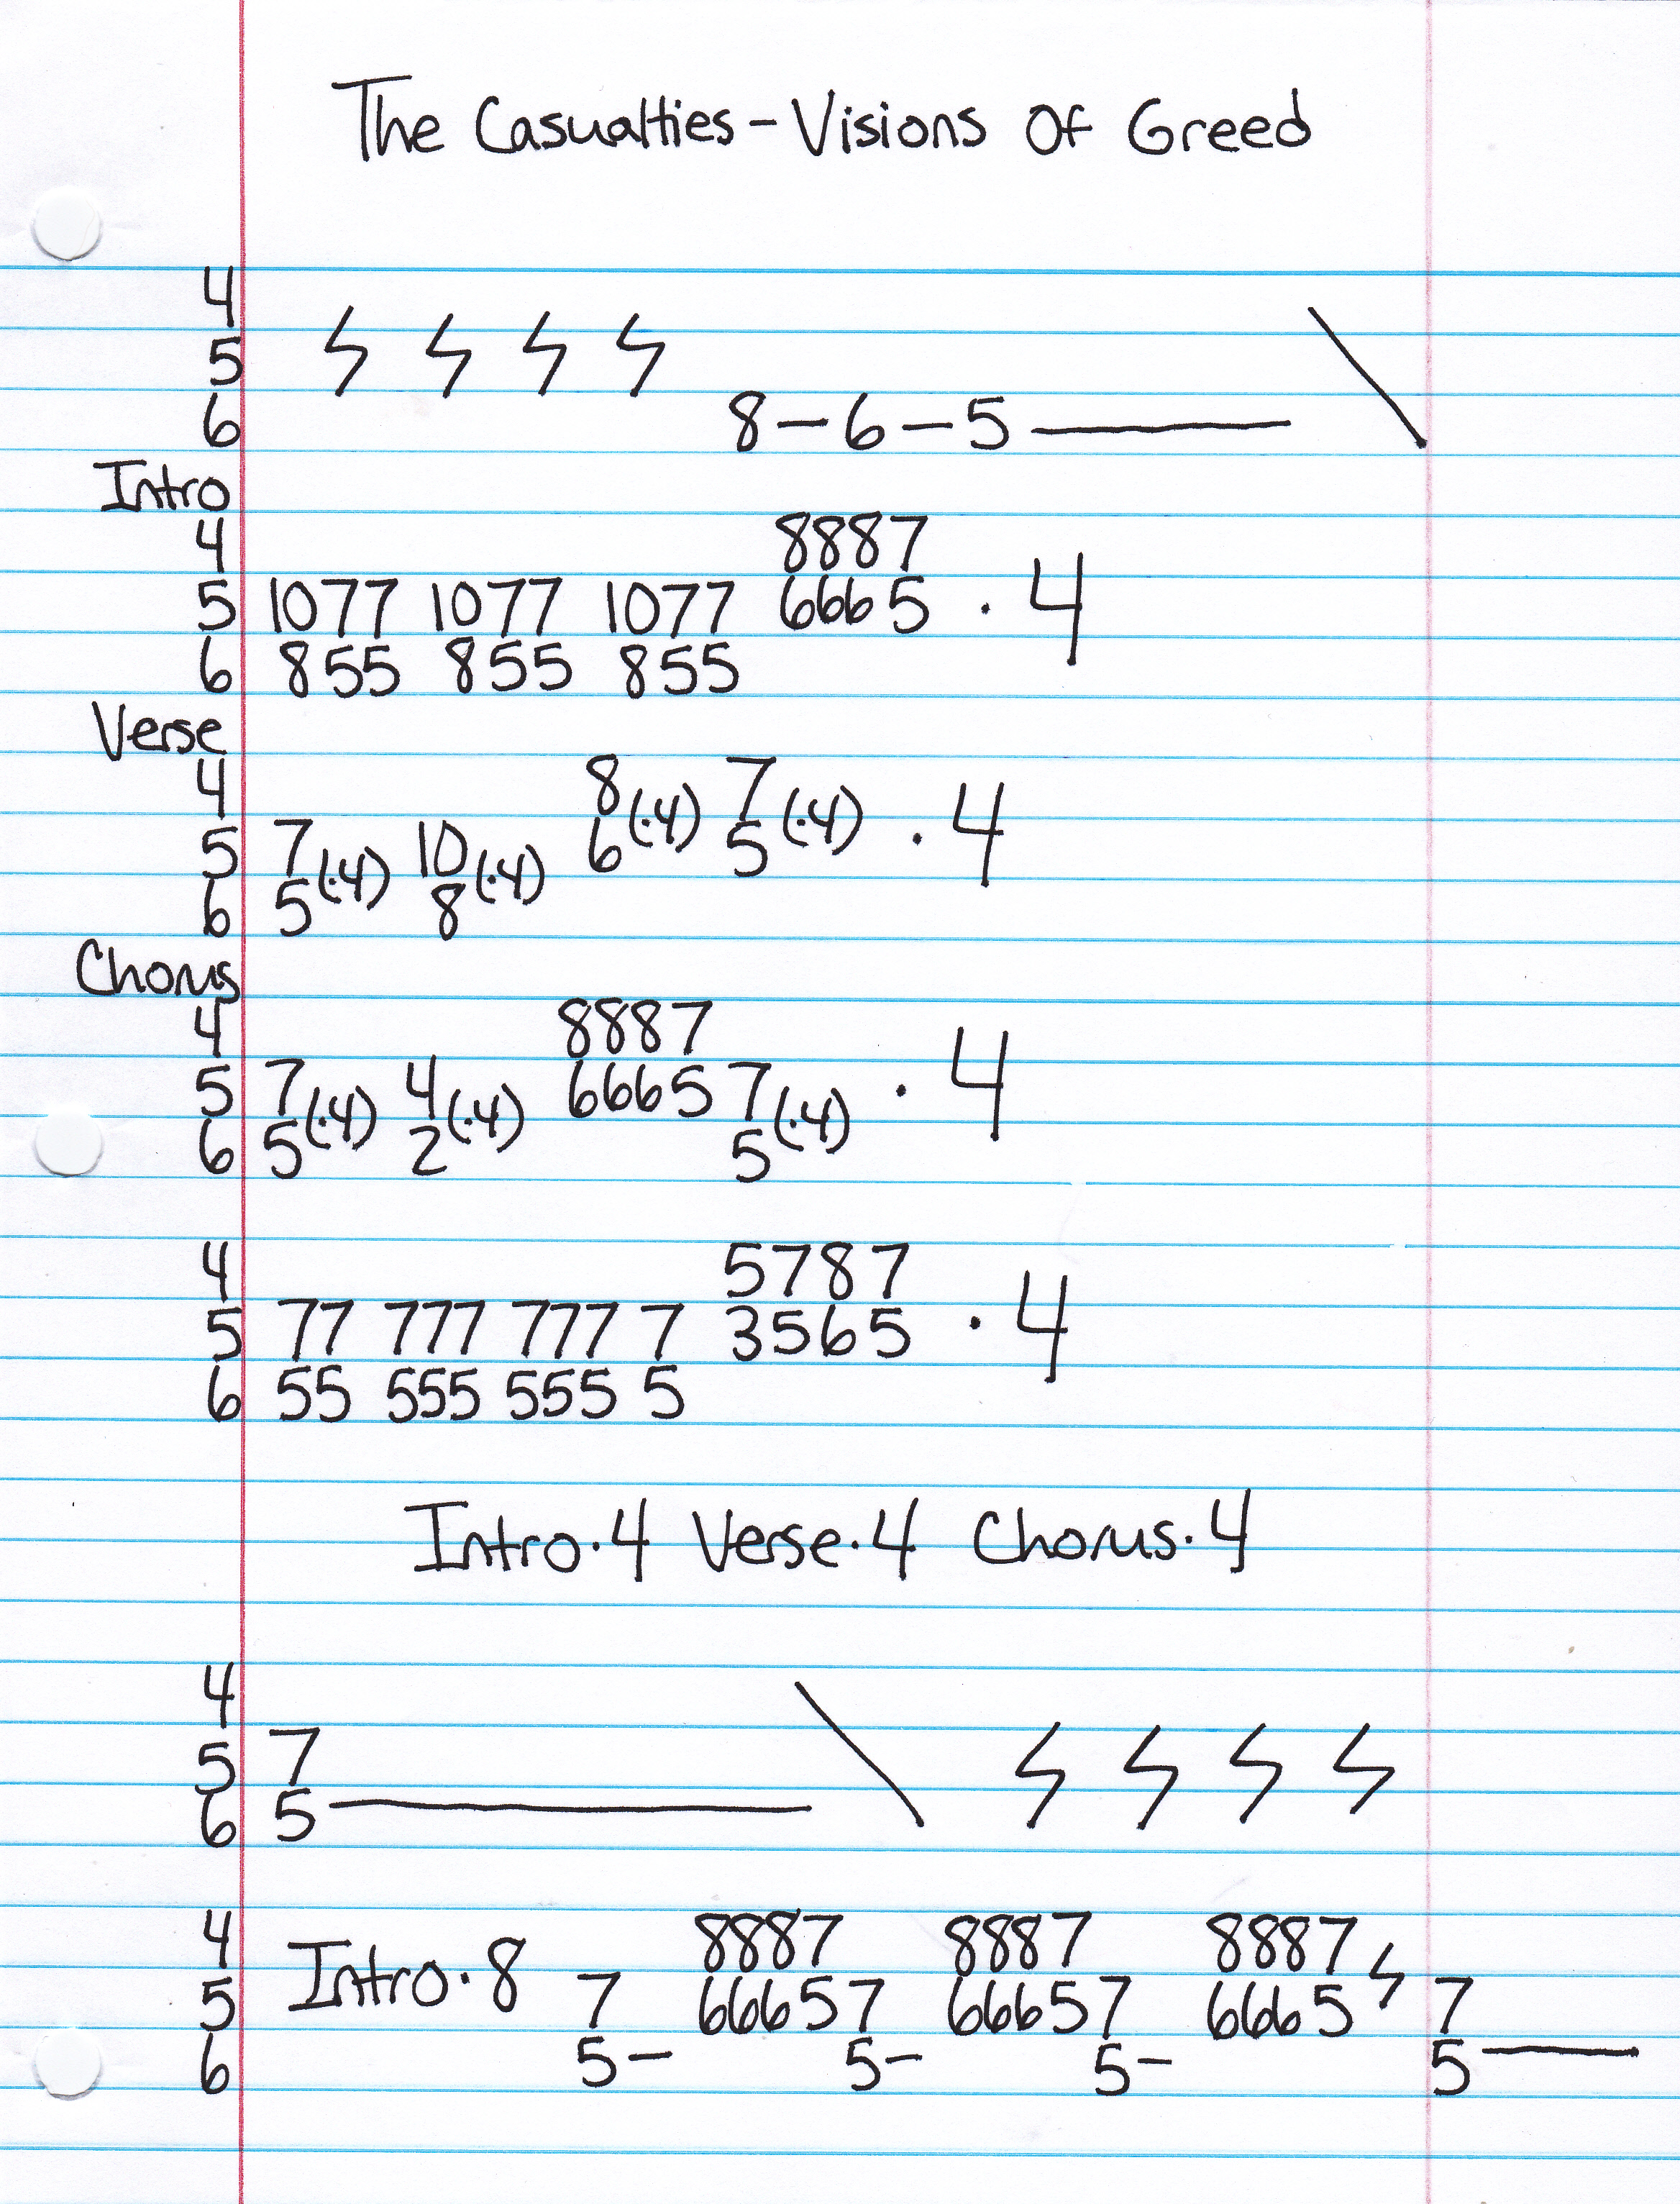 The Casualties - Visions Of Greed
4
5
6 8-6-5
Intro
4 8887
5 1077 1077 1077 6665 · 4
6 855 855 855
Verse
4 8(·4) 7(·4) · 4
5 7(·4) 10(·4) 6 5
6 5 8
Chorus
4 8887
5 7(·4) 4(·4) 6665 7(·4) · 4
6 5 2 5
4 5787
5 77 777 777 7 3565 · 4
6 55 555 555 5
Intro·4 Verse·4 Chorus·4
4
5 7
6 5
4 Intro·8 8887 8887 8887
5 7 66657 66657 6665 7
6 5- 5- 5- 5